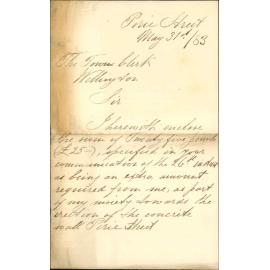 Pirie Street
May 31st/83
The Town Clerk
Wellington
Sir
I herewith enclose
the sum of Twenty five pounds
(£25-), specified in your
communication of the 26th
as being an extra amount
required from me, as part
of my moiety towards the
erection of the concrete
wall Pirie Street